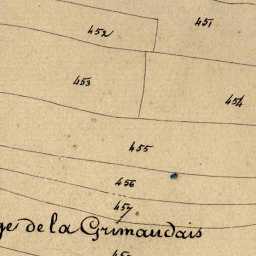 451
452
453
454
455
456
457
ge de la Grimaudais